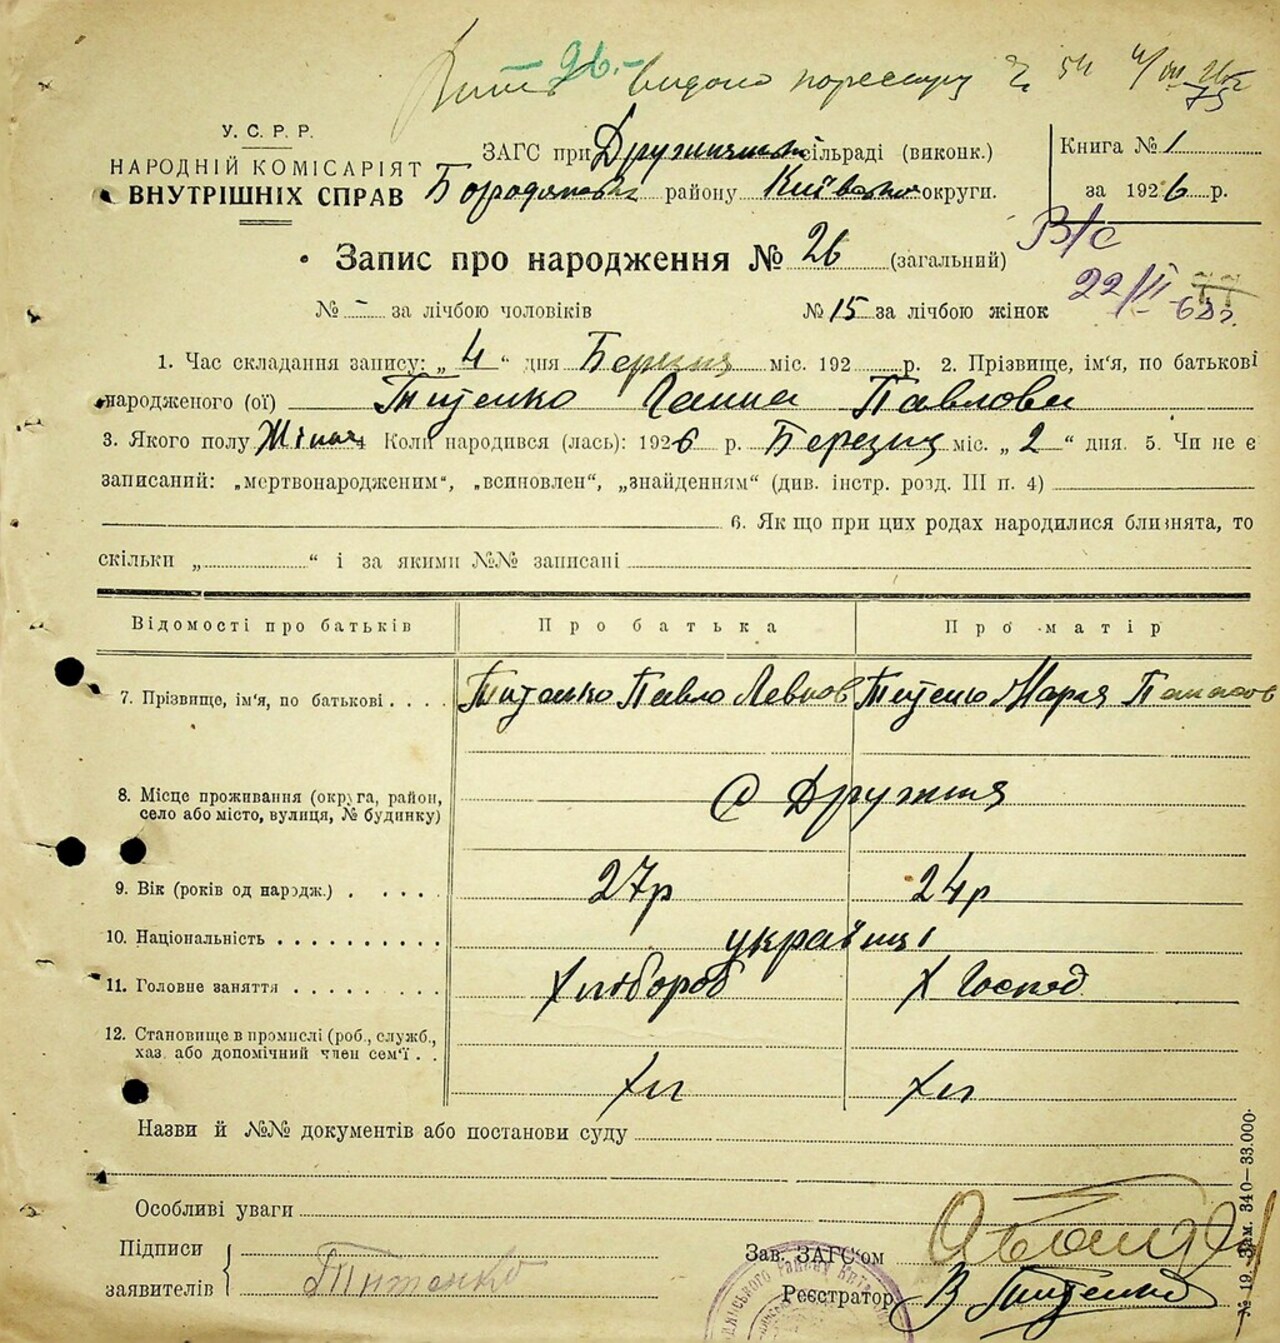 96.-
видано
У. С. Р. Р.
НАРОДНІЙ КОМІСАРІЯТ
ВНУТРІШНІХ СПРАВ
ЗАГС при Дружнянськ сільраді (виконк.)
Бородянськ району Київськ округи.
Книга № 1
за 1926 р.
В/с
22/II-62г.
Запис про народження № 26 (загальний)
№ - за лічбою чоловіків № 15 за лічбою жінок
1. Час складання запису: „4“ дня Березня міс. 192 р. 2. Прізвище, ім'я, по батькові
народженого (ої) Титенко Ганна Павлови
3. Якого полу Жіноч 4 Коли народився (лась): 1926 р. Березня міс. „2“ дня. 5. Чи не є
записаний: „мертвонародженим“, „всиновлен“, „знайденням“ (див. інстр. розд. III п. 4)
6. Як що при цих родах народилися близнята, то
скільки „ “ і за якими №№ записані
Відомості про батьків Про батька Про матір
7. Прізвище, ім'я, по батькові . . . . Титенко Павло Левков Титенко Мария Панасов
8. Місце проживання (округа, район,
село або місто, вулиця, № будинку)
с Дружня
9. Вік (років од народж.) . . . . . 27р 24р
10. Національність . . . . . . . . . . українці
11. Головне заняття . . . . . . . . Хлібороб Х Господ
12. Становище в промислі (роб., служб.,
хаз. або допомічний член сем'ї . .
Хл Хл
Назви й №№ документів або постанови суду
Особливі уваги
Підписи
заявителів
Титенко
Зав. ЗАГС'ом
Реєстратор В Титенко
№ 19. Зам. 340—33.000.